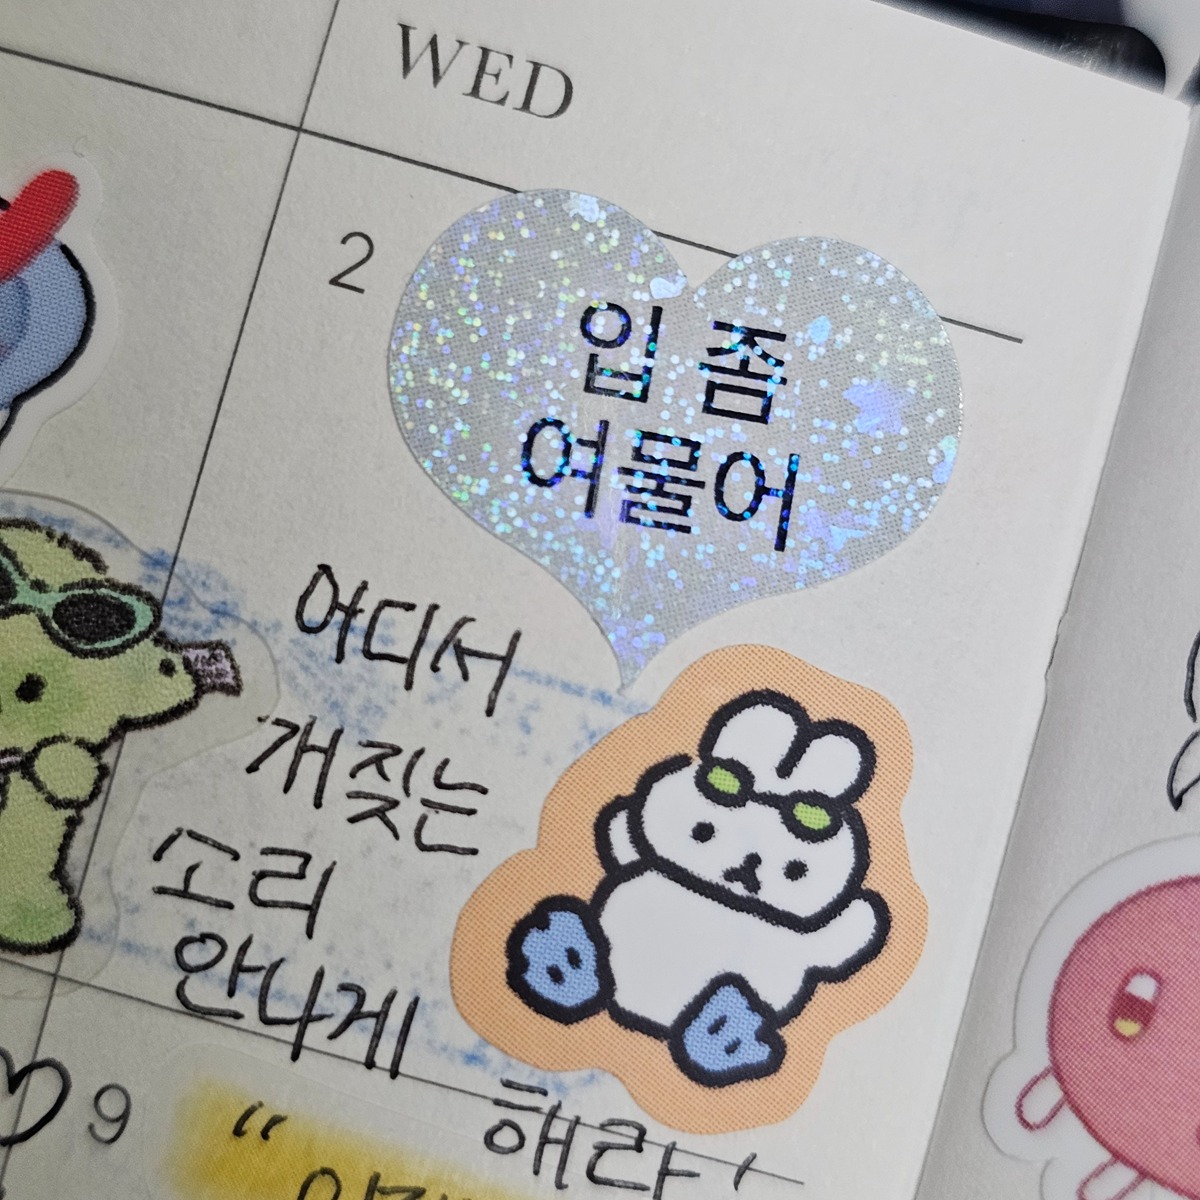 WED
2
입 좀
여물어
어디서
개짖는
소리
안나게
해라'
9
"